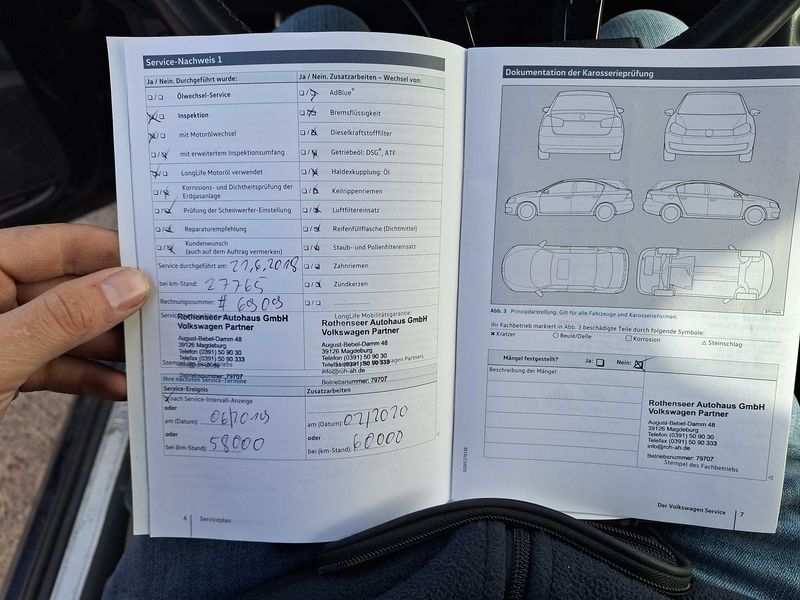 Service-Nachweis 1
Ja / Nein. Durchgeführt wurde:
Ölwechsel-Service
Inspektion
mit Motorölwechsel
mit erweitertem Inspektionsumfang
LongLife Motoröl verwendet
Korrosions- und Dichtheitsprüfung der
Erdgasanlage
Prüfung der Scheinwerfer-Einstellung
Reparaturempfehlung
Kundenwunsch
(auch auf dem Auftrag vermerken)
Service durchgeführt am: 21.6.2018
bei km-Stand: 27765
Rechnungsnummer: # 6909
Rothenseer Autohaus GmbH
Volkswagen Partner
August-Bebel-Damm 48
39126 Magdeburg
Telefon (0391) 50 90 30
Telefax (0391) 50 90 333
info@roh-ah.de
Betriebsnummer: 79707
Ja / Nein. Zusatzarbeiten – Wechsel von:
AdBlue®
Bremsflüssigkeit
Dieselkraftstofffilter
Getriebeöl: DSG®, ATF
Haldexkupplung: Öl
Keilrippenriemen
Luftfiltereinsatz
Reifenfüllflasche (Dichtmittel)
Staub- und Pollenfiltereinsatz
Zahnriemen
Zündkerzen
LongLife Mobilitätsgarantie:
Rothenseer Autohaus GmbH
Volkswagen Partner
August-Bebel-Damm 48
39126 Magdeburg
Telefon (0391) 50 90 30
Telefax (0391) 50 90 333
info@roh-ah.de
Betriebsnummer: 79707
Ihre nächsten Service-Termine
Service-Ereignis
nach Service-Intervall-Anzeige
oder
am (Datum): 06/2019
oder
bei (km-Stand): 58000
Zusatzarbeiten
am (Datum): 02/2020
oder
bei (km-Stand): 60000
6 Serviceplan
Dokumentation der Karosserieprüfung
Abb. 3 Prinzipdarstellung: Gilt für alle Fahrzeuge und Karosserieformen.
Ihr Fachbetrieb markiert in Abb. 3 beschädigte Teile durch folgende Symbole:
Kratzer Beule/Delle Korrosion Steinschlag
Mängel festgestellt? Ja: Nein:
Beschreibung der Mängel:
Rothenseer Autohaus GmbH
Volkswagen Partner
August-Bebel-Damm 48
39126 Magdeburg
Telefon (0391) 50 90 30
Telefax (0391) 50 90 333
info@roh-ah.de
Betriebsnummer: 79707
Stempel des Fachbetriebs
Der Volkswagen Service 7